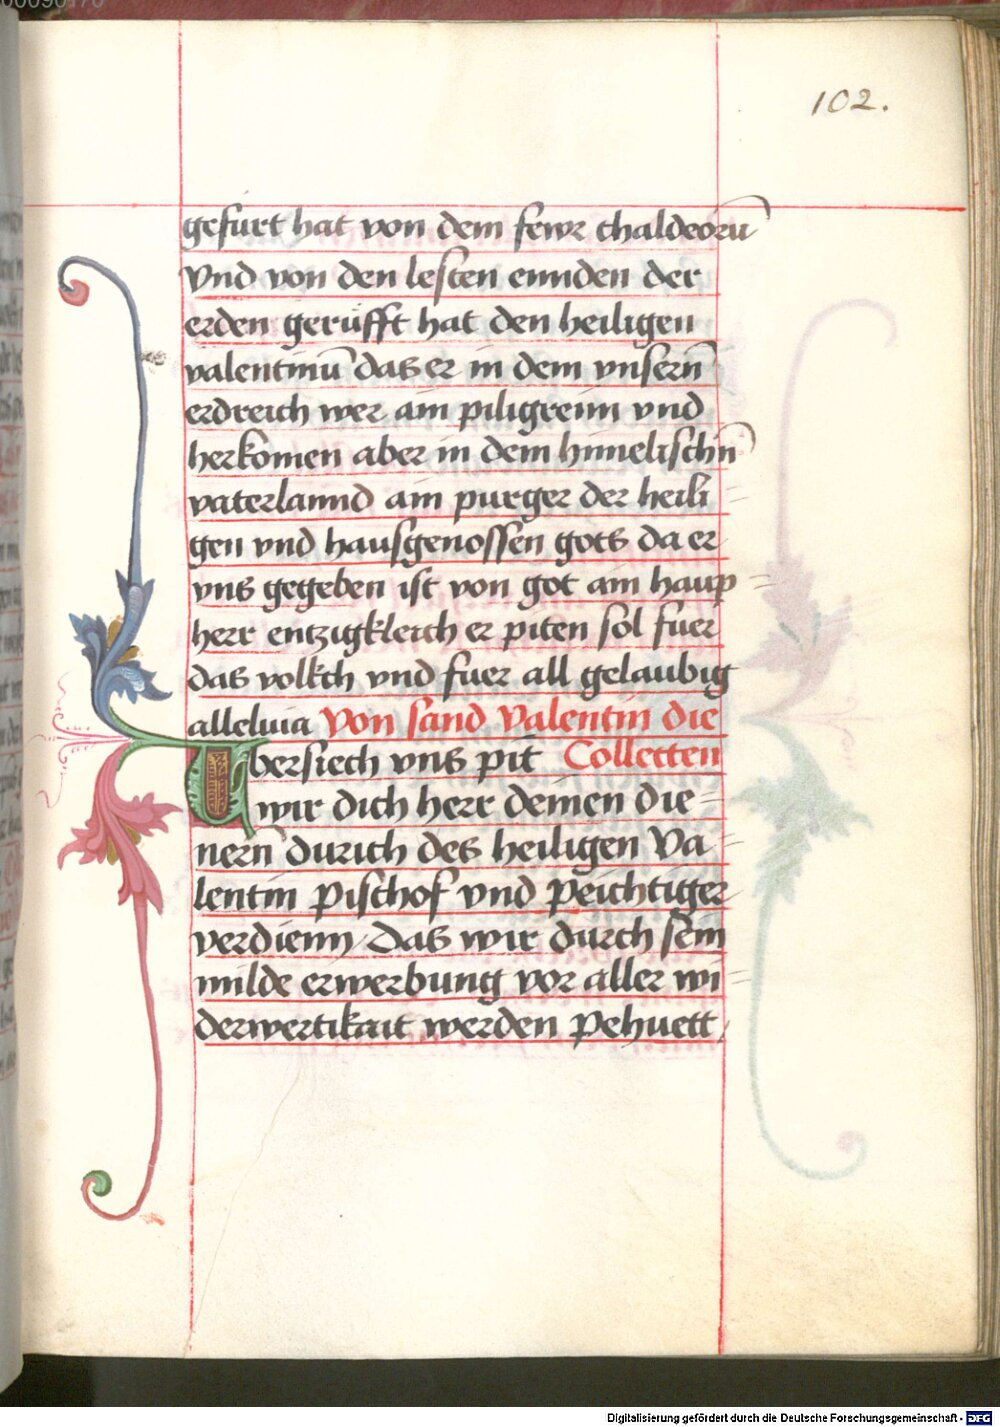 00090170
102.
gefürt hat von dem fewr chaldeorū
Vnd von den lesten ennden der
erden gerüfft hat den heiligen
valentinū das er in dem vnsern̄
erdreich wer ain piligreim vnd
herkomen aber in dem himelischn̄
vaterlannd ain purger der heili=
gen vnd hausgenossen gots da er
vns gegeben ist von got ain haup=
herr entzigkleich er piten sol fuer
das volkch vnd fuer all gelaubig
alleluia Von sand Valentin die
Vbersiech vns pit Collecten
wir dich herr deinen die=
nern̄ durich des heiligen Va=
lentin Pischof vnd Peichtiger
verdienn / Das wir durch sein
milde erwerbung vor aller wi=
derwertikait werden Pehuett /
Digitalisierung gefördert durch die Deutsche Forschungsgemeinschaft - DFG